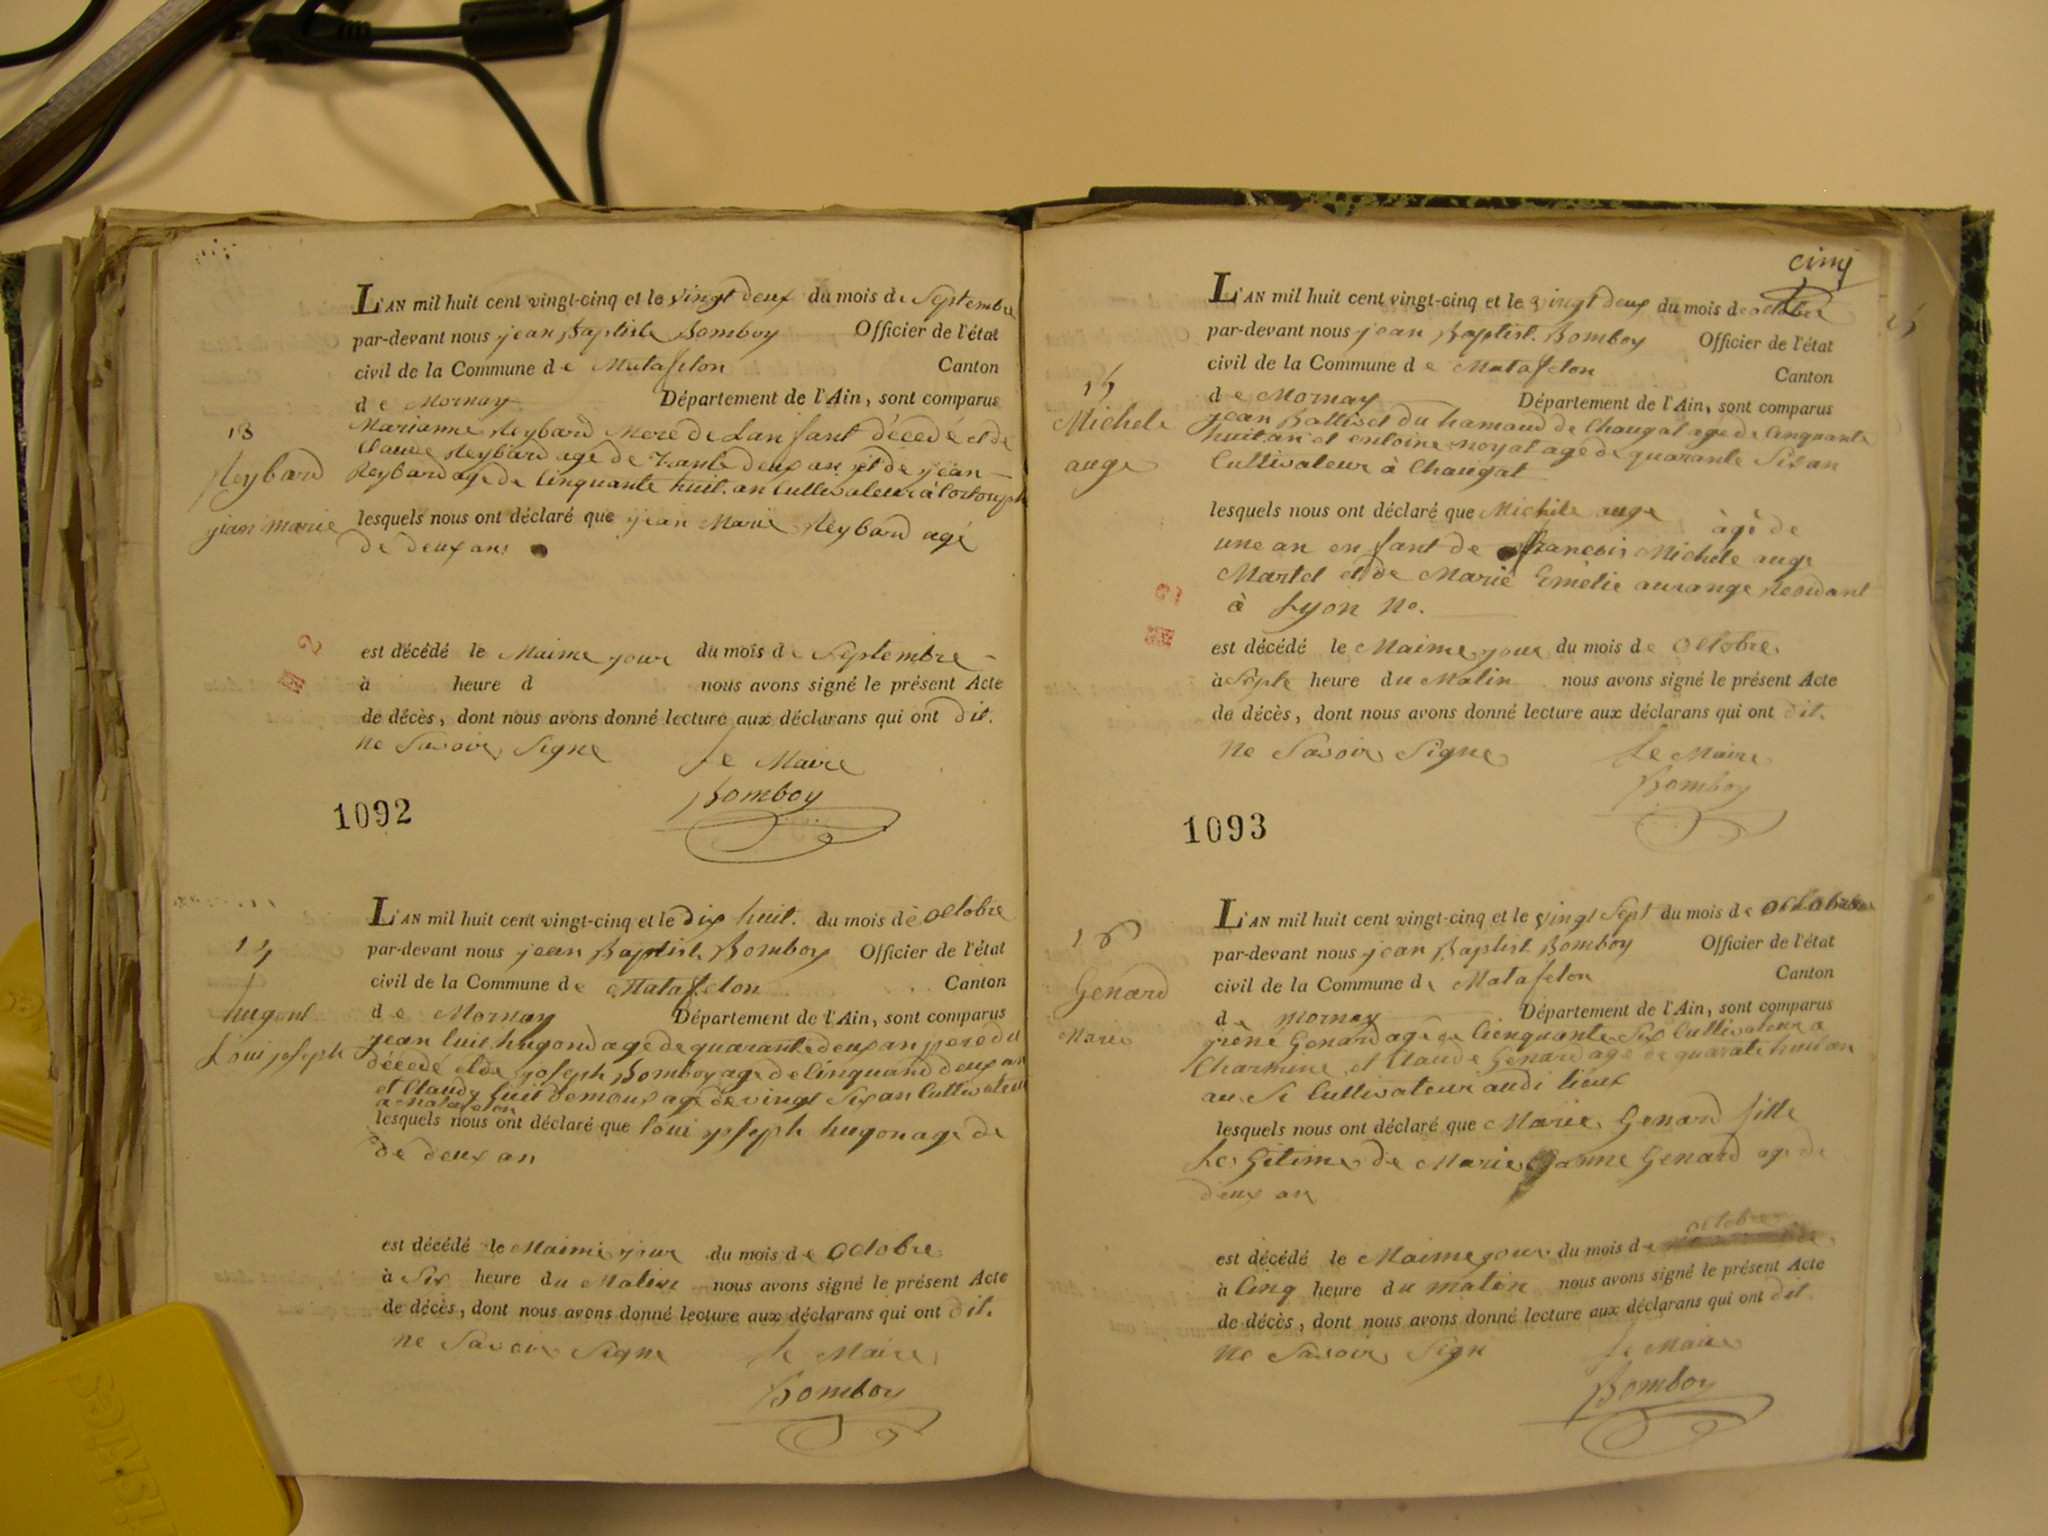 L'AN mil huit cent vingt-cinq et le vingt deux du mois de Septembre
par-devant nous jean Baptiste Bomboy Officier de l'état
civil de la Commune de Matafelon Canton
de Mornay Département de l'Ain, sont comparus
Marianne Reybard Mere de Lanfant décedé et de
Claude Reybard age de Trante deux an et de jean
Reybard age de Cinquante huit an Cultivateur à
13
Reybard
jean marie
lesquels nous ont déclaré que jean Marie Reybard agé
de deux an
est décédé le Maime jour du mois de Septembre
à heure d nous avons signé le présent Acte
de décès, dont nous avons donné lecture aux déclarans qui ont dit
ne Savoir Signe Le Maire
Bomboy
1092
L'AN mil huit cent vingt-cinq et le dix huit du mois de Octobre
par-devant nous jean Baptist Bomboy Officier de l'état
civil de la Commune de Matafelon Canton
de Mornay Département de l'Ain, sont comparus
14
hugont
Loui joseph
jean luis hugond age de quarante deux an pere du
décédé et de joseph Bomboy age de Cinquand deux an
et Claudy age de vingt Six an Cultivateur
a Matafelon
lesquels nous ont déclaré que loui joseph hugon age de
de deux an
est décédé le Maime jour du mois de Octobre
à Six heure du Matin nous avons signé le présent Acte
de décès, dont nous avons donné lecture aux déclarans qui ont dit
ne Savoir Signe Le Maire
Bomboy
cinq
L'AN mil huit cent vingt-cinq et le vingt deux du mois de octobre
par-devant nous jean Baptist Bomboy Officier de l'état
civil de la Commune de Matafelon Canton
de Mornay Département de l'Ain, sont comparus
15
Michele
ange
jean Battiset du hamaud de Chaugat age de Cinquante
huit an et entoine noyat age de quarante Six an
Cultivateur à Chaugat
lesquels nous ont déclaré que Michele ange àgè de
une an enfant de francois Michele ange
Martel et de Marie Emélie aurange Residant
à Lyon No.
est décédé le Maime jour du mois de Octobre
à Septe heure du Matin nous avons signé le présent Acte
de décès, dont nous avons donné lecture aux déclarans qui ont dit
ne Savoir Signe Le Maire
Bomboy
1093
L'AN mil huit cent vingt-cinq et le vingt Sept du mois de Octobre
par-devant nous jean Baptist Bomboy Officier de l'état
civil de la Commune de Matafelon Canton
de Mornay Département de l'Ain, sont comparus
16
Genard
Marie
Genard age de Cienquante Six Cultivateur a
Charmine et Claude Genard age de quarate huit an
au Si Cultivateur audi lieux
lesquels nous ont déclaré que Marie Genard fille
Le Gitime de Marie Genard age de
deux an
octobre
est décédé le Maime jour du mois de
à Cinq heure du matin nous avons signé le présent Acte
de décès, dont nous avons donné lecture aux déclarans qui ont dit
ne Savoir Sign Le Maire
Bomboy